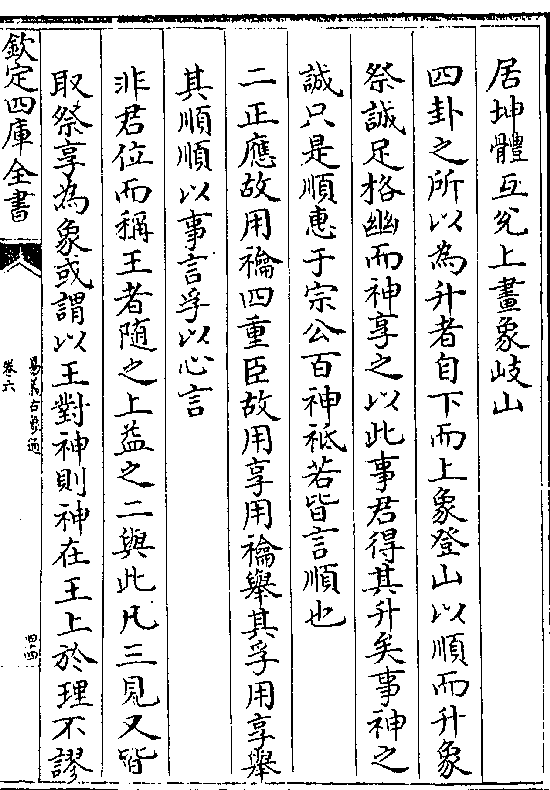 居坤體互兊上畫象岐山
四卦之所以為升者自下而上象登山以順而升象
祭誠足格幽而神享之以此事君得其升矣事神之
誠只是順惠于宗公百神祗若皆言順也
二正應故用禴四重臣故用享用禴舉其孚用享舉
其順順以事言孚以心言
非君位而稱王者随之上益之二與此凡三見又皆
取祭享為象或謂以王對神則神在王上於理不謬
欽定四庫全書
易象義通
卷六
四十四